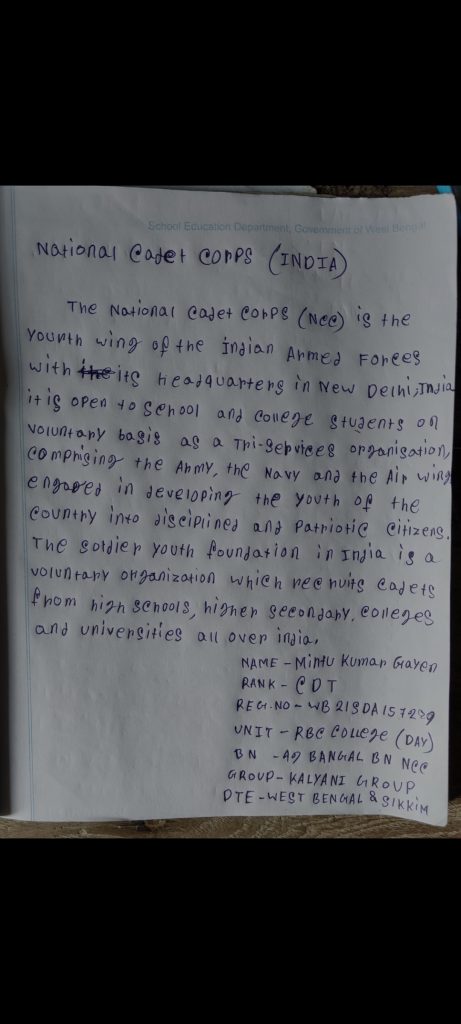 School Education Department, Government of West Bengal
National Cadet Corps (INDIA)
The National Cadet Corps (NCC) is the
Yourth wing of the Indian Armed Forces
with the its Headquarters in New Delhi, India
it is open to School and College students on
voluntary basis as a Tri-Services organisation,
comprising the Army, the Navy and the Air wing
engaged in developing the youth of the
country into disciplined and Patriotic Citizens.
The Soldier Youth foundation in India is a
voluntary organization which recruits cadets
from high schools, higher secondary, colleges
and universities all over india.
NAME - Mintu Kumar Gayen
RANK - CDT
REG.NO - WB21SDA157239
UNIT - RBC College (DAY)
BN - BANGAL BN NCC
GROUP - KALYANI GROUP
DTE - WEST BENGAL & SIKKIM